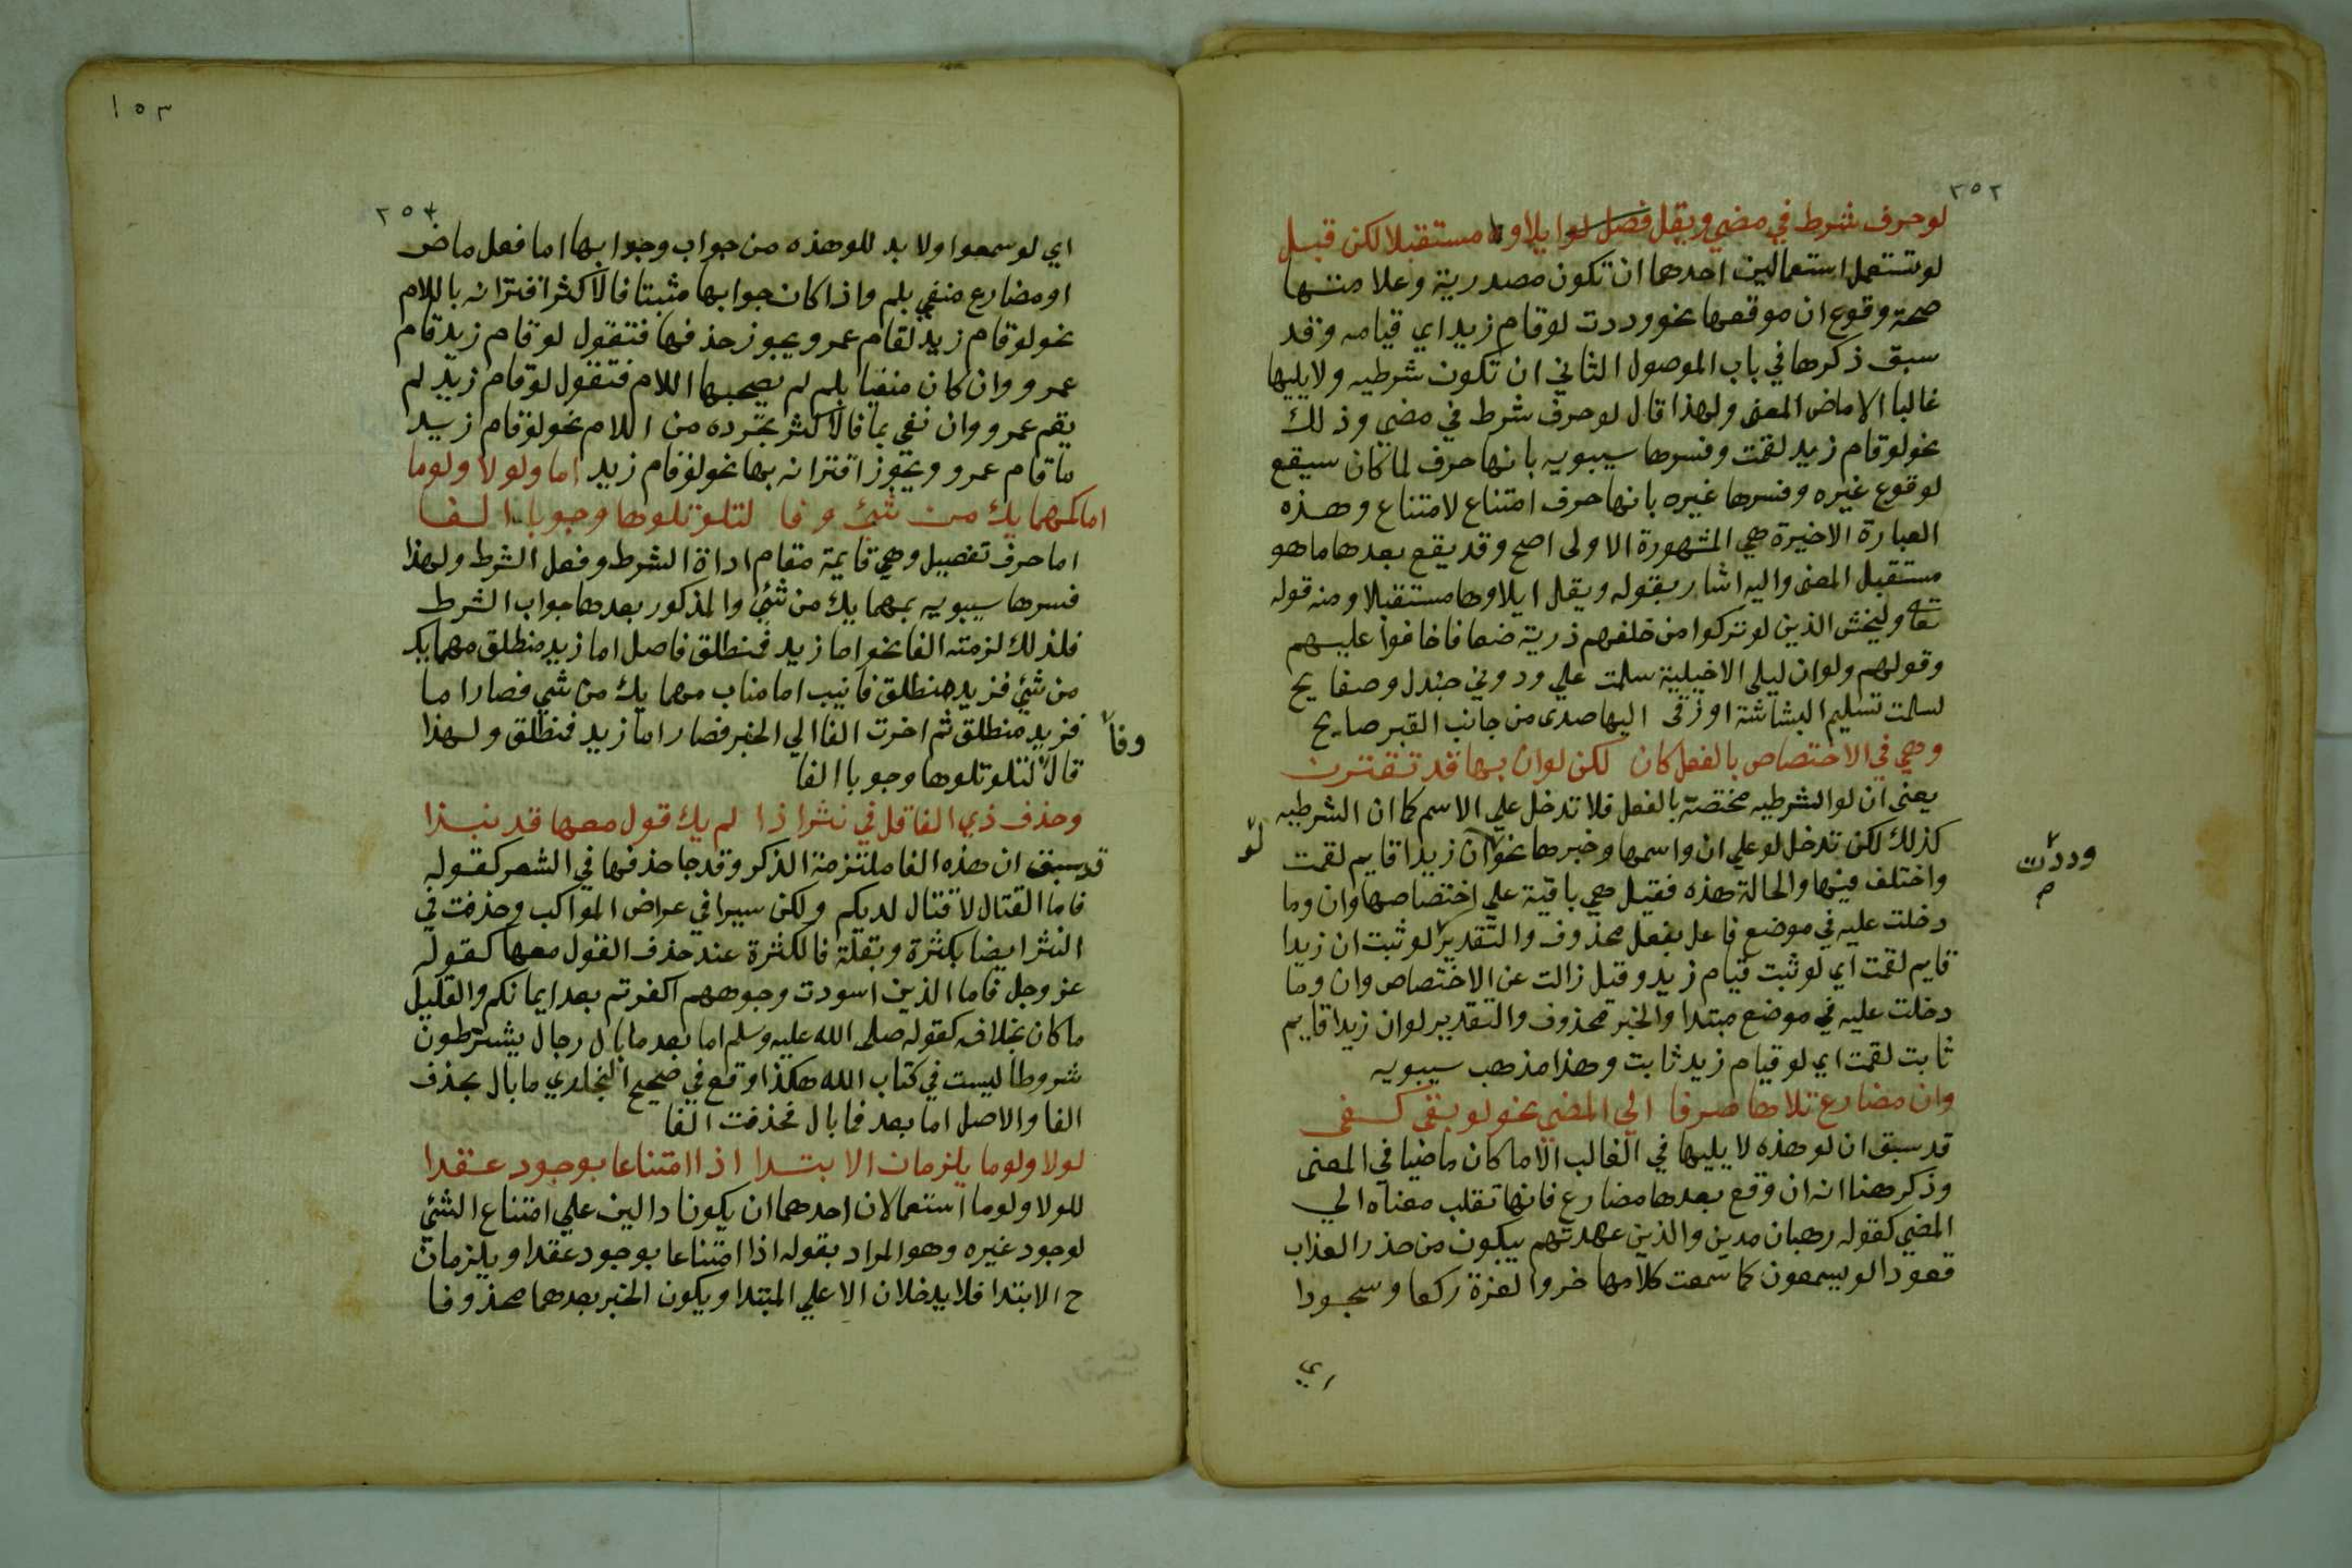 ٢٥٢
لو حرف شرط في مضي ويقل فصل لو ايلاوها مستقبلا لكن قبل
لو تستعمل استعمالين احدهما ان تكون مصدرية وعلامتها
صحة وقوع ان موقعها نحو وددت لو قام زيد اي قيامه وقد
سبق ذكرها في باب الموصول الثاني ان تكون شرطيه ولا يليها
غالبا الا ماض المعنى ولهذا قال لو حرف شرط في مضي وذلك
نحو لو قام زيد لقمت وفسرها سيبويه بانها حرف لما كان سيقع
لوقوع غيره وفسرها غيره بانها حرف امتناع لامتناع وهذه
العبارة الاخيرة هي المشهورة الاولى اصح وقد يقع بعدها ما هو
مستقبل المعنى واليه اشار بقوله ويقل ايلاوها مستقبلا ومنه قوله
تعا وليخش الذين لو تركوا من خلفهم ذرية ضعافا خافوا عليهم
وقولهم ولو ان ليلى الاخيلية سلمت علي ودوني جندل وصفايح
لسلمت تسليم البشاشة او زقى اليها صدى من جانب القبر صايح
وهي في الاختصاص بالفعل كان لكن لو ان بها قد تقترن
يعني ان لو الشرطيه مختصة بالفعل فلا تدخل علي الاسم كما ان الشرطيه
كذلك لكن تدخل لو علي ان واسمها وخبرها نحو ان زيدا قايم لقمت
لو
وددت
م
واختلف فيها والحالة هذه فقيل هي باقية علي اختصاصها وان وما
دخلت عليه في موضع فاعل بفعل محذوف والتقدير لو ثبت ان زيدا
قايم لقمت اي لو ثبت قيام زيد وقيل زالت عن الاختصاص وان وما
دخلت عليه في موضع مبتدا والخبر محذوف والتقدير لو ان زيدا قايم
ثابت لقمت اي لو قيام زيد ثابت وهذا مذهب سيبويه
وان مضارع تلاها صرفا الي المضي نحو لو يفى كفى
قد سبق ان لو هذه لا يليها في الغالب الا ما كان ماضيا في المعنى
وذكر هنا انه ان وقع بعدها مضارع فانها تقلب معناه الي
المضي كقوله رهبان مدين والذين عهدتهم يبكون من حذر العذاب
قعودا لو يسمعون كما سمعت كلامها خروا لعزة ركعا وسجودا
اي
١٥٣
٢٥٤
اي لو سمعوا ولا بد للو هذه من جواب وجوابها اما فعل ماض
او مضارع منفي بلم واذا كان جوابها مثبتا فالاكثر اقترانه باللام
نحو لو قام زيد لقام عمرو ويجوز حذفها فتقول لو قام زيد قام
عمرو وان كان منفيا بلم لم يصحبها اللام فتقول لو قام زيد لم
يقم عمرو وان نفي بما فالاكثر تجرده من اللام نحو لو قام زيد
ما قام عمرو ويجوز اقترانه بها نحو لو قام زيد اما ولولا ولوما
اما كمهما يك من شئ وفا لتلو تلوها وجوبا الفا
اما حرف تفصيل وهي قايمة مقام اداة الشرط وفعل الشرط ولهذا
فسرها سيبويه بمهما يك من شئ والمذكور بعدها جواب الشرط
فلذلك لزمته الفا نحو اما زيد فمنطلق فاصل اما زيد منطلق مهما يك
من شئ فزيد منطلق فانيب اما مناب مهما يك من شي فصار اما
فزيد منطلق ثم اخرت الفا الي الخبر فصار اما زيد فمنطلق ولهذا
وفا
قال لتلو تلوها وجوبا الفا
وحذف ذي الفا قل في نثر اذا لم يك قول معها قد نبذا
قد سبق ان هذه الفا ملتزمة الذكر وقد جا حذفها في الشعر كقوله
فاما القتال لا قتال لديكم ولكن سيرا في عراض المواكب وحذفت في
النثر ايضا بكثرة وبقلة فالكثرة عند حذف القول معها كقوله
عز وجل فاما الذين اسودت وجوههم اكفرتم بعد ايمانكم والقليل
ما كان بخلافه كقوله صلى الله عليه وسلم اما بعد ما بال رجال يشترطون
شروطا ليست في كتاب الله هكذا وقع في صحيح البخاري ما بال بحذف
الفا والاصل اما بعد فما بال فحذفت الفا
لولا ولوما يلزمان الابتدا اذا امتناعا بوجود عقدا
للولا ولوما استعمالان احدهما ان يكونا دالين علي امتناع الشئ
لوجود غيره وهو المراد بقوله اذا امتناعا بوجود عقدا ويلزمان
ح الابتدا فلا يدخلان الا علي المبتدا ويكون الخبر بعدهما محذوفا